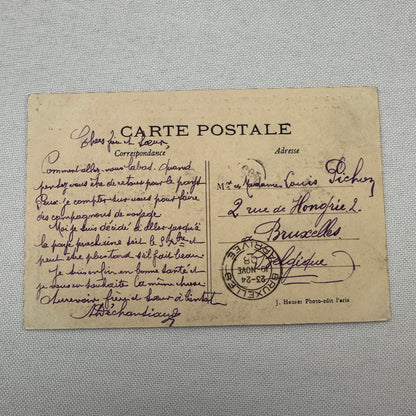 Chers frère et Sœur,
CARTE POSTALE
Correspondance
Adresse
Comment allez vous labas. Quand
pensez vous être de retour pour le pays
Je compter sur vous pour faire
des compagnons de voyage
Moi je suis décidé d'aller jusqu'à
la paye prochaine soit le 9 et
peut être plus tard s'il fait beau
Je suis enfin en bonne santé et
je vous en souhaite la même chose
Au revoir frère et Sœur à l'instant
ADéchansiaud
Mr et Madame Louis Pichon
2 rue de Hongrie 2.
Bruxelles
Belgique
BRUXELLES
ARRIVÉE
23-24
10 NOVE
J. Hauser Photo-edit Paris